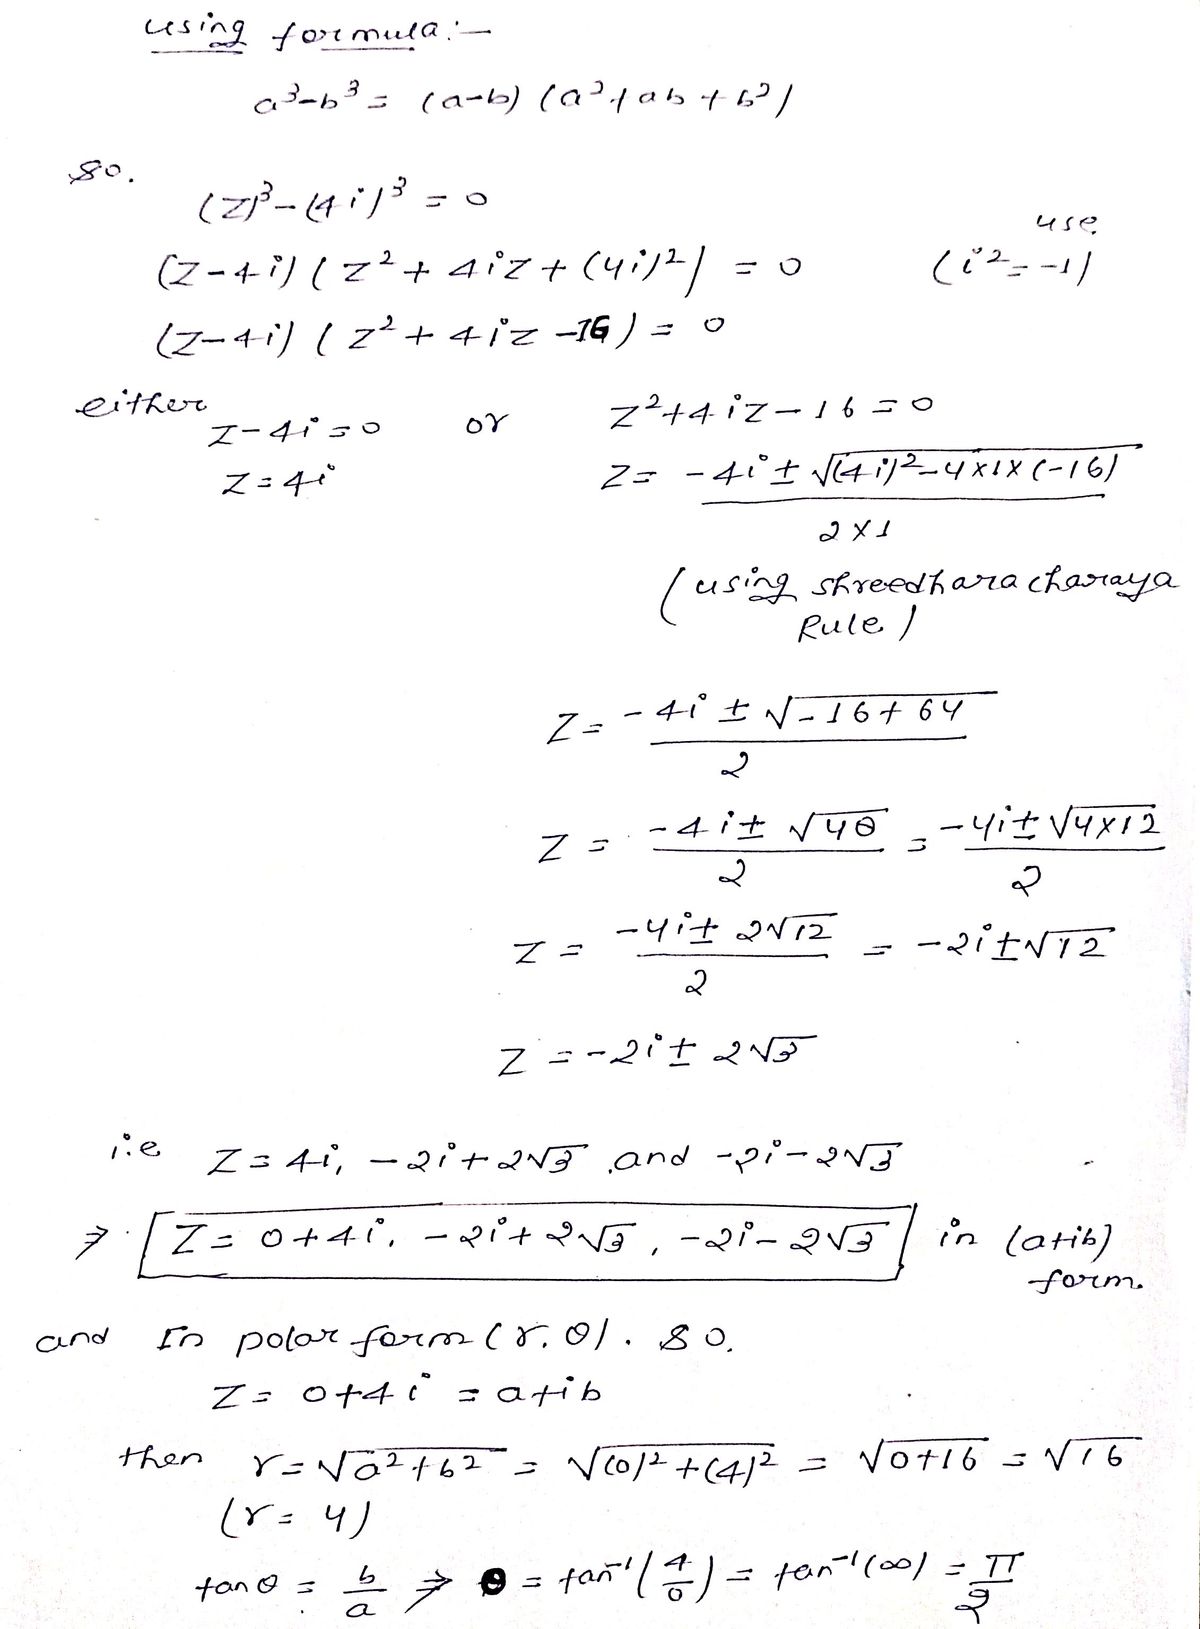 using formula:-
a³-b³ = (a-b) (a²+ab+b²)
So.
(Z)³-(4i)³ = 0
use
(Z-4i) (Z²+4iZ+(4i)²) = 0 (i²=-1)
(Z-4i) (Z²+4iZ-16) = 0
either
Z-4i=0 or Z²+4iZ-16=0
Z=4i Z= -4i±√(4i)²-4×1×(-16)
2×1
(using shreedharacharaya
Rule)
Z= -4i±√-16+64
2
Z = -4i±√48 = -4i±√4×12
2 2
Z = -4i±2√12 = -2i±√12
2
Z = -2i±2√3
i.e Z=4i, -2i+2√3 and -2i-2√3
⇒ Z= 0+4i, -2i+2√3, -2i-2√3 in (a+ib)
form.
and In polar form (r,θ). So.
Z= 0+4i = a+ib
then r=√a²+b² = √(0)²+(4)² = √0+16 = √16
(r= 4)
tanθ = b/a ⇒ θ = tan⁻¹(4/0) = tan⁻¹(∞) = π/2